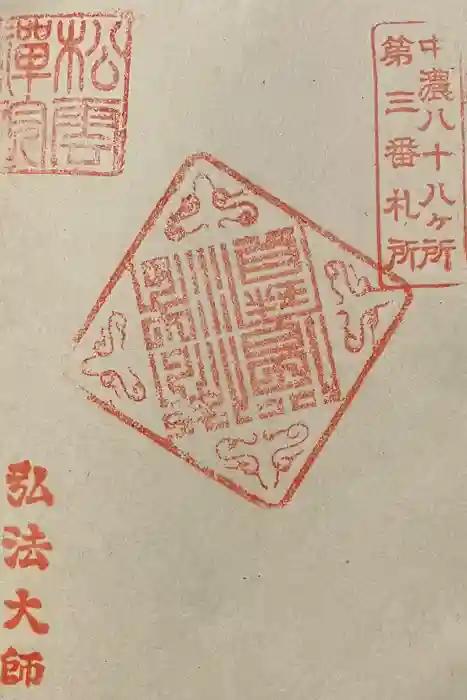 中濃八十八ヶ所
第三番札所
松雲
禪院
弘法大師